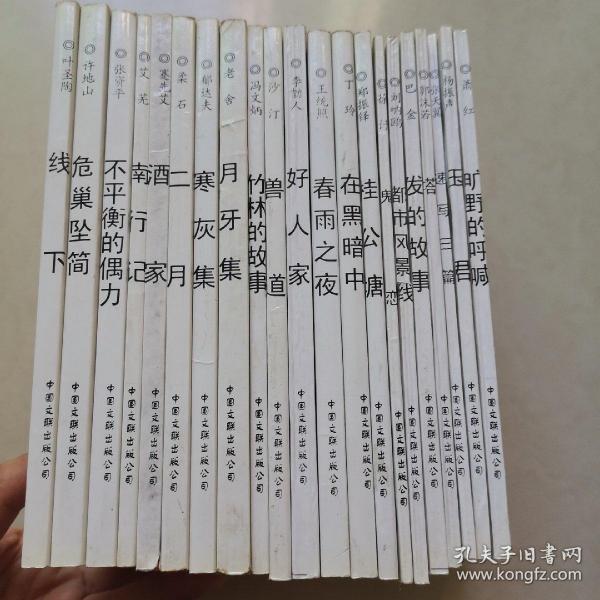 叶圣陶
线下
中国文联出版公司
许地山
危巢坠简
中国文联出版公司
张资平
不平衡的偶力
中国文联出版公司
艾芜
南行记
中国文联出版公司
蹇先艾
酒家
中国文联出版公司
柔石
二月
中国文联出版公司
郁达夫
寒灰集
中国文联出版公司
老舍
月牙集
中国文联出版公司
冯文炳
竹林的故事
中国文联出版公司
沙汀
兽道
中国文联出版公司
李劼人
好人家
中国文联出版公司
王统照
春雨之夜
中国文联出版公司
丁玲
在黑暗中
中国文联出版公司
郑振铎
桂公塘
中国文联出版公司
徐訏
鬼恋
中国文联出版公司
刘呐鸥
都市风景线
中国文联出版公司
巴金
发的故事
中国文联出版公司
郭沫若
塔
中国文联出版公司
张天翼
速写三篇
中国文联出版公司
杨振声
玉君
中国文联出版公司
萧红
旷野的呼喊
中国文联出版公司
孔夫子旧书网
www.kongfz.com